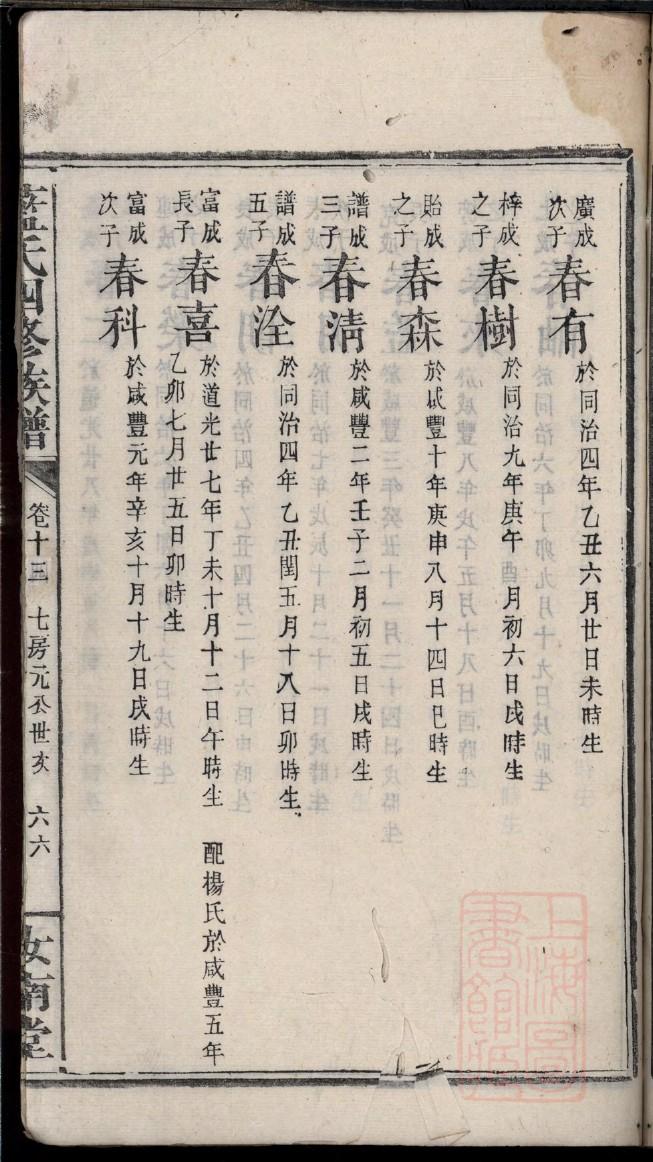 廣成次子春有於同治四年乙丑六月廿日未時生
梓成之子春樹於同治九年庚午 月初六日戌時生
貽成之子春森於咸豐十年庚申八月十四日巳時生
譜成三子春淸於咸豐二年壬子二月初五日戌時生
譜成五子春洤於同治四年乙丑閏五月十八日卯時生
富成長子春喜於道光廿七年丁未十月十二日午時生 配楊氏於咸豐五年
乙卯七月廿五日卯時生
富成次子春科於咸豐元年辛亥十月十九日戌時生
氏四修族譜 卷十三 七房元公世亥 六六 汝南堂
上海圖書館藏